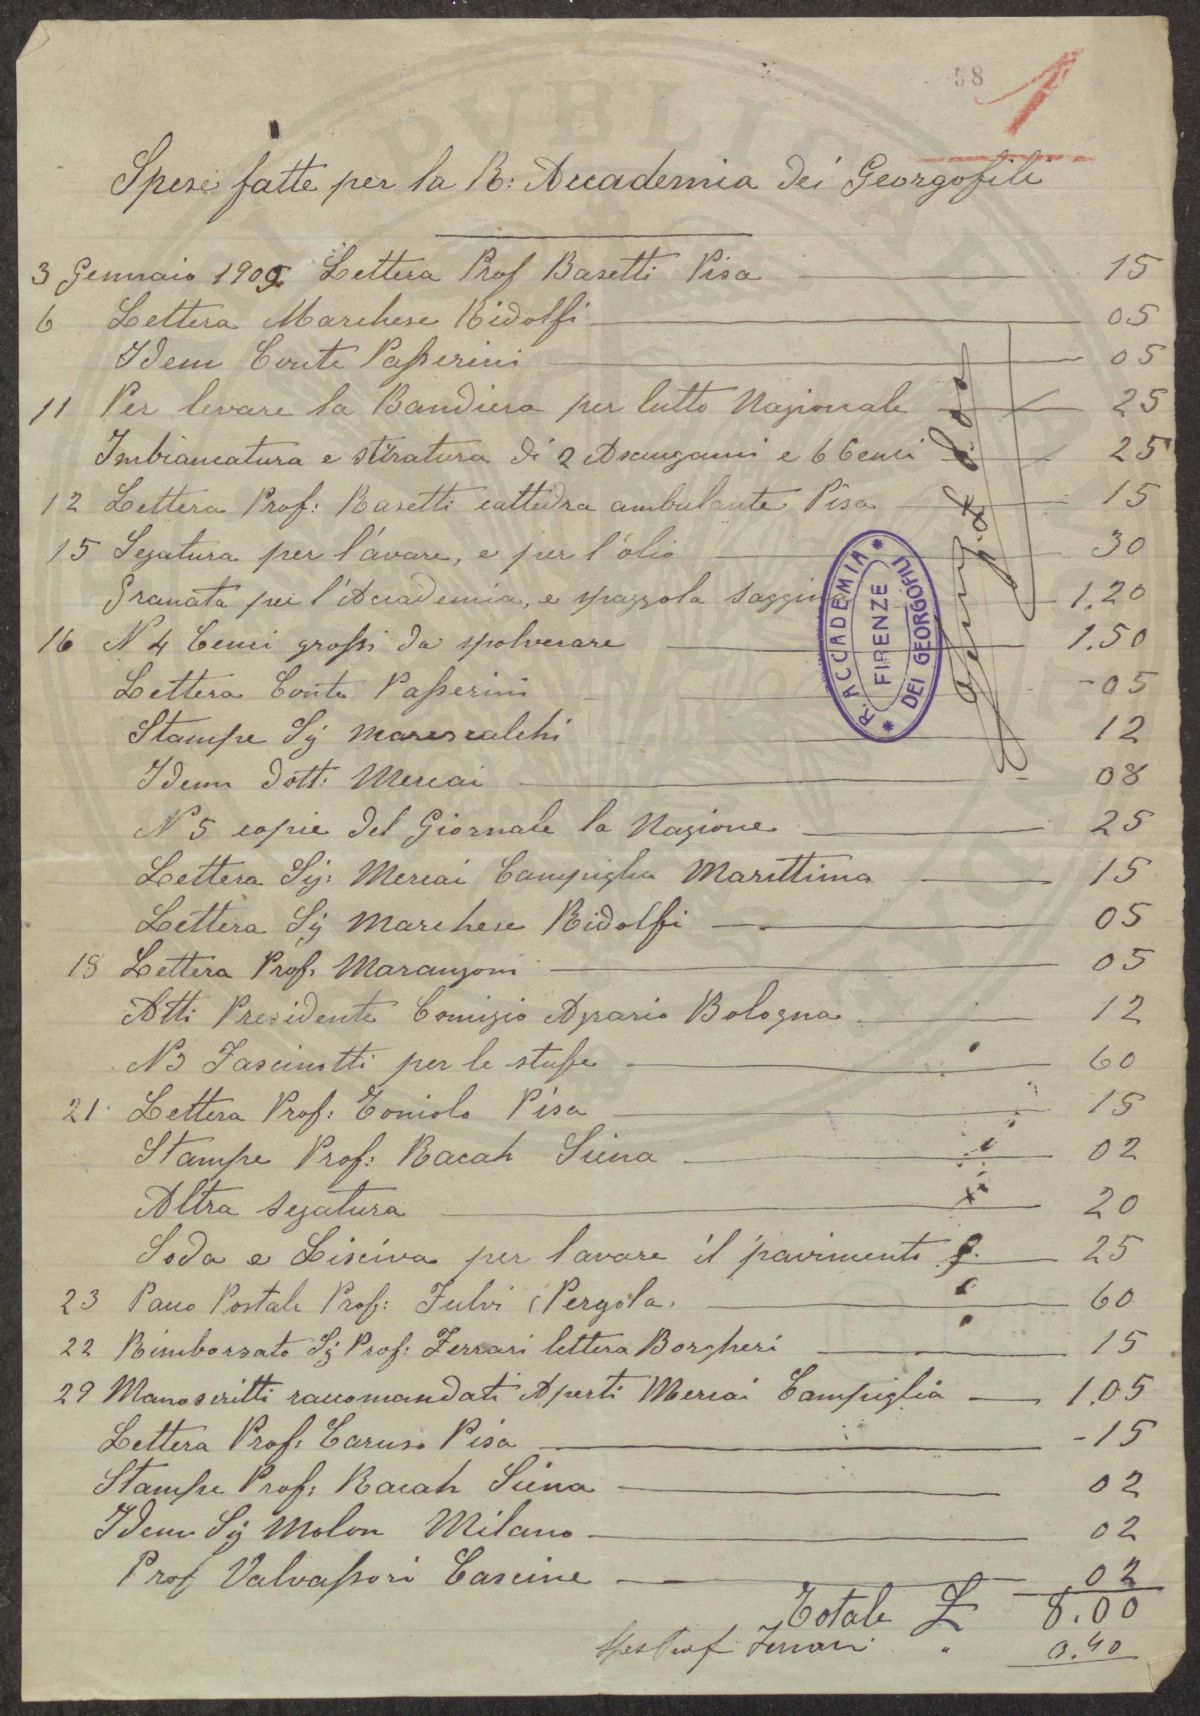 58
1
Spese fatte per la R: Accademia dei Georgofili
3 Gennaio 1905 Lettera Prof Basetti Pisa 15
6 Lettera Marchese Ridolfi 05
Idem Conte Passerini 05
11 Per levare la Bandiera per lutto Nazionale 25
Imbiancatura e stiratura di 2 Asciugami e 6 Cenci 25
12 Lettera Prof: Basetti cattedra ambulante Pisa 15
15 Segatura per l'avare, e per l'olio 30
Granata per l'Accademia, e spazzola 1.20
16 N 4 Cenci grossi da spolverare 1.50
Lettera Conte Passerini -05
Stampe Sig Marescalchi 12
Idem dott: Mercai 08
N 5 copie del Giornale la Nazione 25
Lettera Sig: Mercai Campiglia Marittima 15
Lettera Sig Marchese Ridolfi 05
18 Lettera Prof. Marangoni 05
Atti Presidente Comizio Agrario Bologna 12
N 3 Fascinotti per le stufe 60
21 Lettera Prof: Toniolo Pisa 15
Stampe Prof: Racah Siena 02
Altra segatura 20
Soda e Lisciva per lavare il pavimento 25
23 Pacco Postale Prof: Fulvi Pergola. 60
22 Rimborsato Sig Prof: Ferrari lettera Borgheri 15
29 Manoscritti raccomandati Aperti Mercai Campiglia 1.05
Lettera Prof: Caruso Pisa -15
Stampe Prof: Racah Siena 02
Idem Sig Molon Milano 02
Prof Valvassori Cascine 02
Totale £ 8.00
Prof Ferrari " 0.40
R. ACCADEMIA
FIRENZE
DEI GEORGOFILI